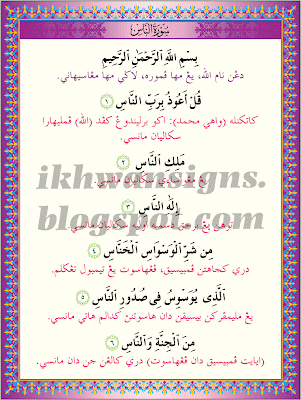 سُوْرَةُ النَّاسِ
بِسْمِ اللَّهِ الرَّحْمَٰنِ الرَّحِيمِ
دڠن نام الله، يڠ مها ڤموره، لاڬي مها مڠاسيهاني.
قُلْ أَعُوذُ بِرَبِّ النَّاسِ ١
كاتكنله (واهي محمد): اكو برليندوڠ كڤد (الله) ڤمليهارا
سكالين مانسي.
مَلِكِ النَّاسِ ٢
يڠ مڠواساءي سكالين مانسي.
إِلَٰهِ النَّاسِ ٣
توهن يڠ برحق دسمبه اوليه سكالين مانسي.
مِن شَرِّ الْوَسْوَاسِ الْخَنَّاسِ ٤
دري كجاهتن ڤمبيسيق، ڤڠهاسوت يڠ تيمبول تڠݢلم.
الَّذِى يُوَسْوِسُ فِى صُدُورِ النَّاسِ ٥
يڠ مليمڤركن بيسيقن دان هاسوتنن كدالم هاتي مانسي.
مِنَ الْجِنَّةِ وَالنَّاسِ ٦
(اياءيت ڤمبيسيق دان ڤڠهاسوت) دري كالڠن جن دان مانسي.
ikhwansigns.
blogspot.com